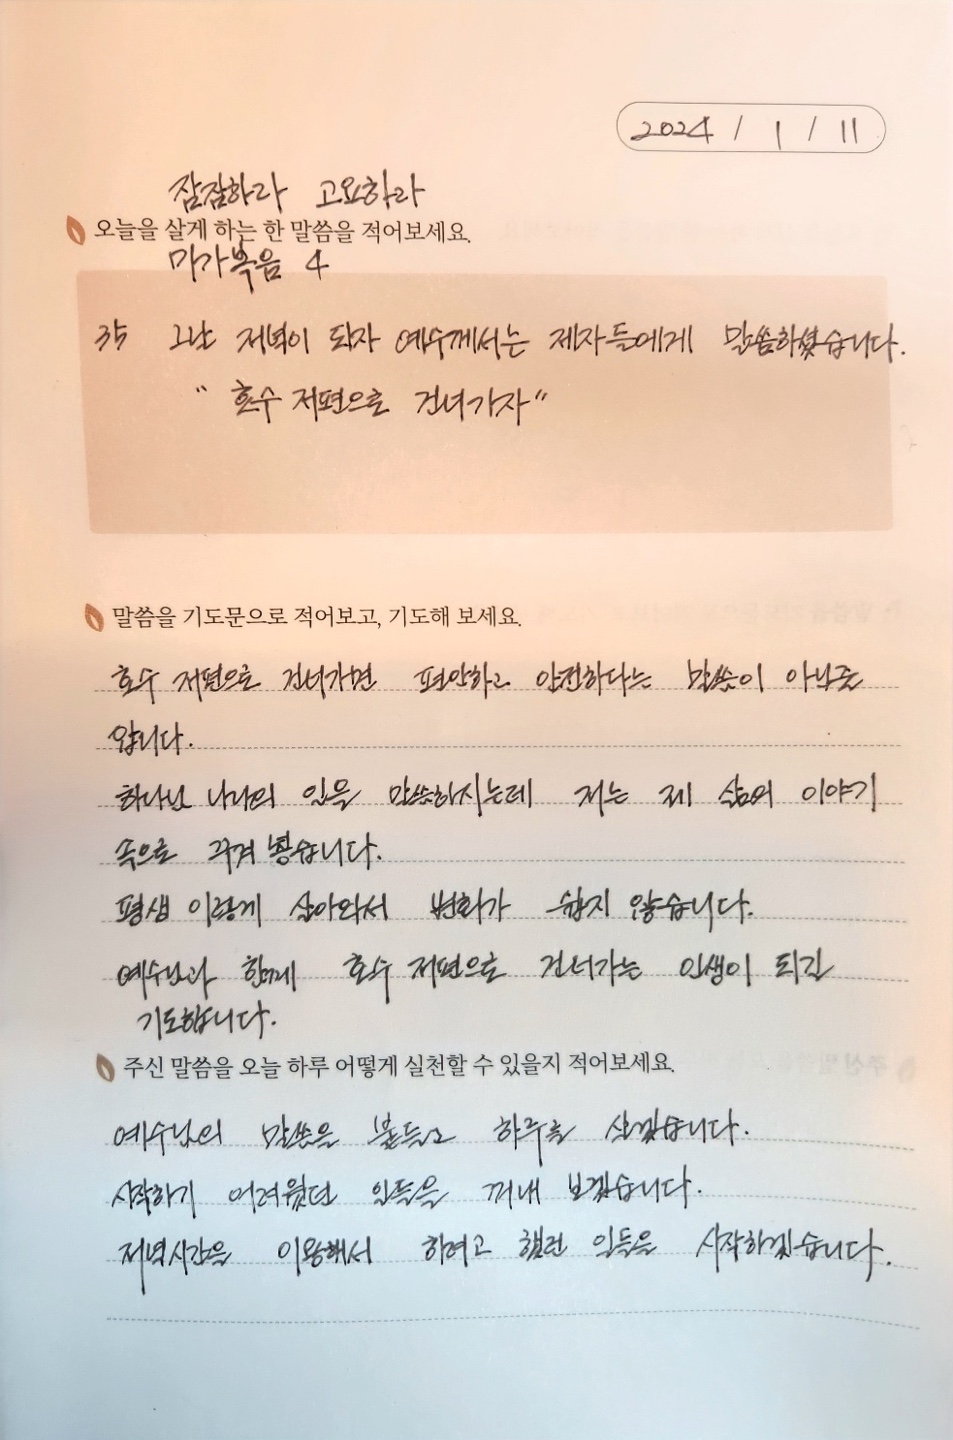 2024 / 1 / 11
잠잠하라 고요하라
오늘을 살게 하는 한 말씀을 적어보세요.
마가복음 4
35 그날 저녁이 되자 예수께서는 제자들에게 말씀하셨습니다.
" 호수 저편으로 건너가자 "
말씀을 기도문으로 적어보고, 기도해 보세요.
호수 저편으로 건너가면 편안하고 안전하다는 말씀이 아닌줄
압니다.
하나님 나라의 일을 말씀하시는데 저는 제 삶의 이야기
속으로 구겨 넣습니다.
평생 이렇게 살아와서 변화가 쉽지 않습니다.
예수님과 함께 호수 저편으로 건너가는 인생이 되길
기도합니다.
주신 말씀을 오늘 하루 어떻게 실천할 수 있을지 적어보세요.
예수님의 말씀을 붙들고 하루를 살겠습니다.
시작하기 어려웠던 일들을 꺼내 보겠습니다.
저녁시간을 이용해서 하려고 했던 일들을 시작하겠습니다.